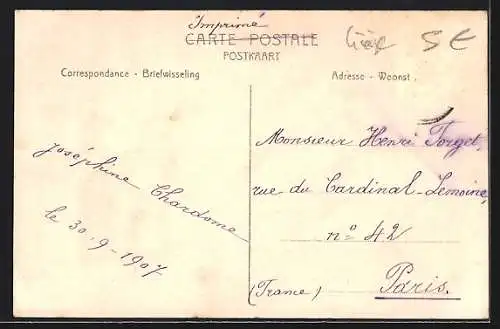 Imprimé
CARTE POSTALE
POSTKAART
5 €
Correspondance - Briefwisseling
Adresse - Woonst.
Joséphine Chardome
le 30-9-1907
Monsieur Henri Forget,
rue du Cardinal-Lemoine,
nº 42
Paris.
(France)